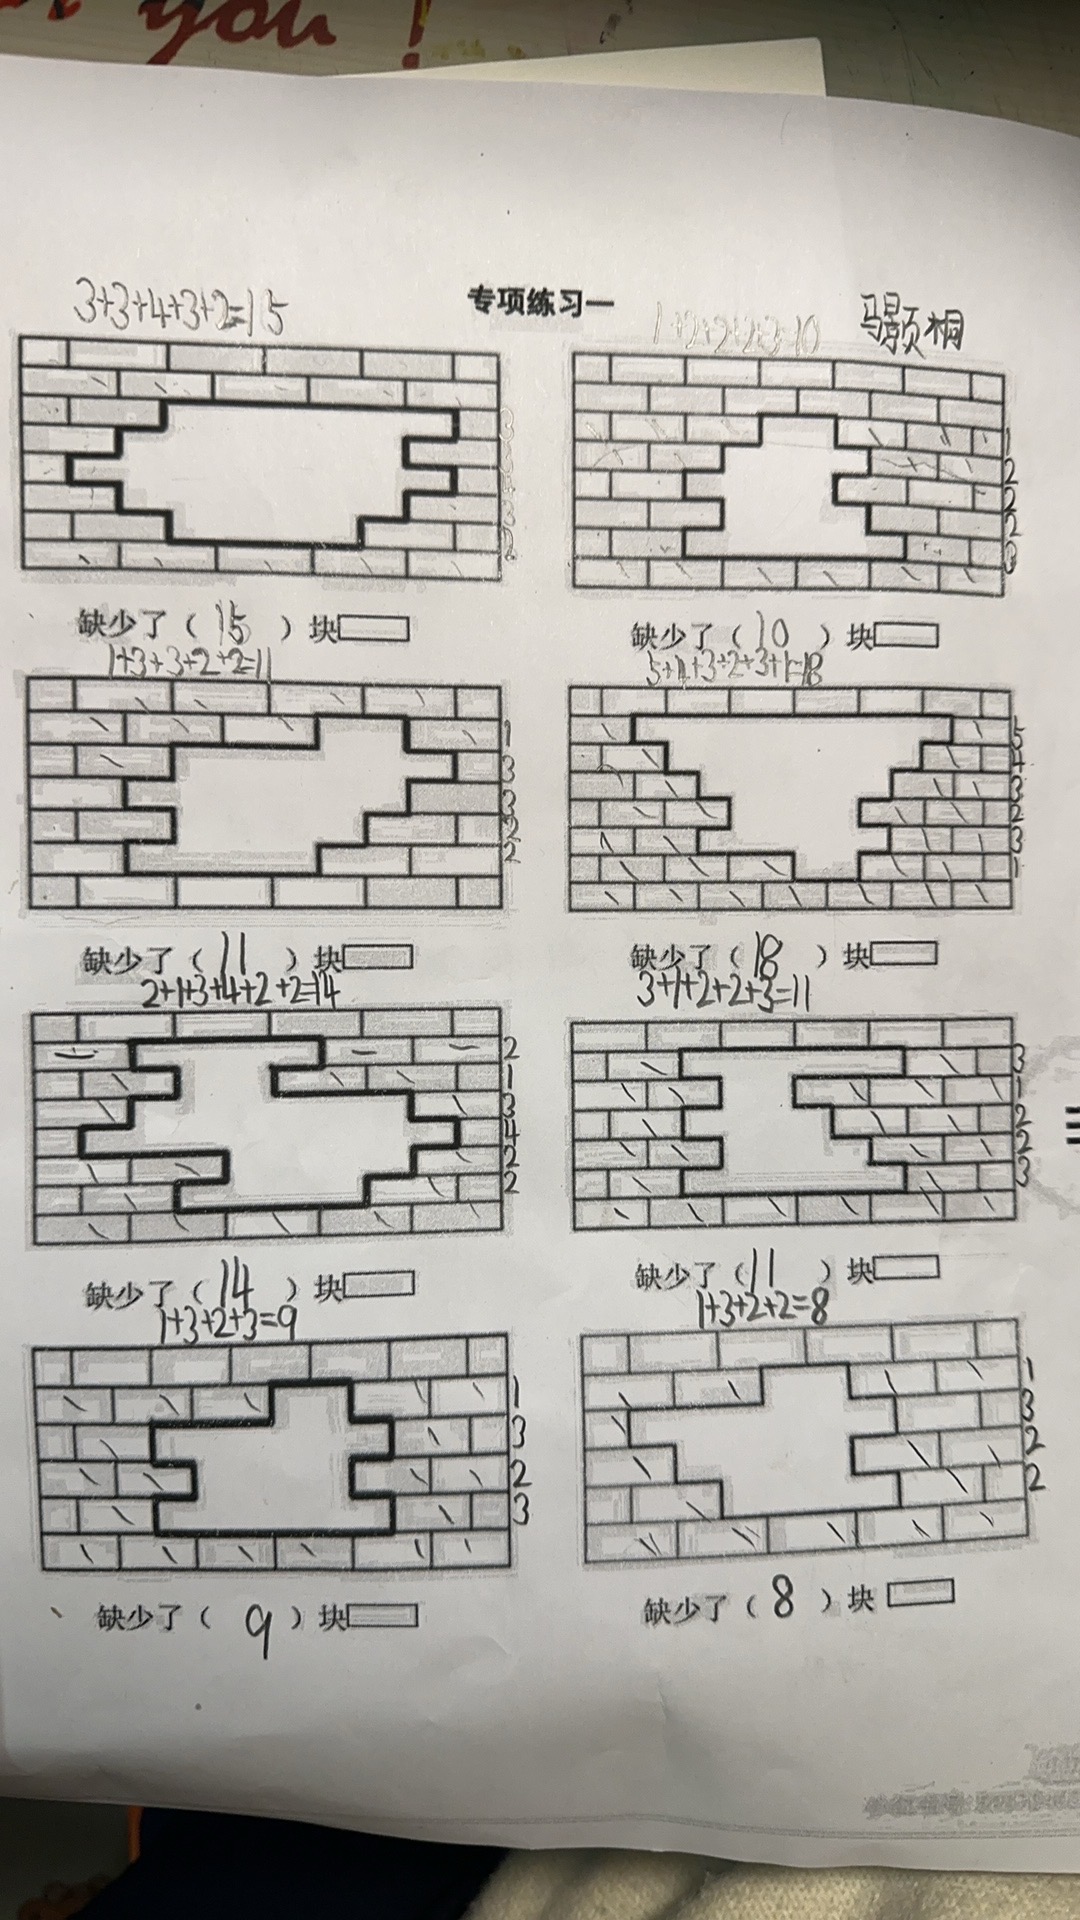 you!
专项练习一
3+3+4+3+2=15
1+2+2+2+3=10
1
2
2
2
3
缺少了（ 15 ）块
缺少了（ 10 ）块
1+3+3+2+2=11
5+4+3+2+3+1=18
1
3
3
2
2
5
4
3
2
3
1
缺少了（ 11 ）块
缺少了（ 18 ）块
2+1+3+4+2+2=14
3+1+2+2+3=11
2
1
3
4
2
2
3
1
2
2
3
缺少了（ 14 ）块
缺少了（ 11 ）块
1+3+2+3=9
1+3+2+2=8
1
3
2
3
1
3
2
2
缺少了（ 9 ）块
缺少了（ 8 ）块